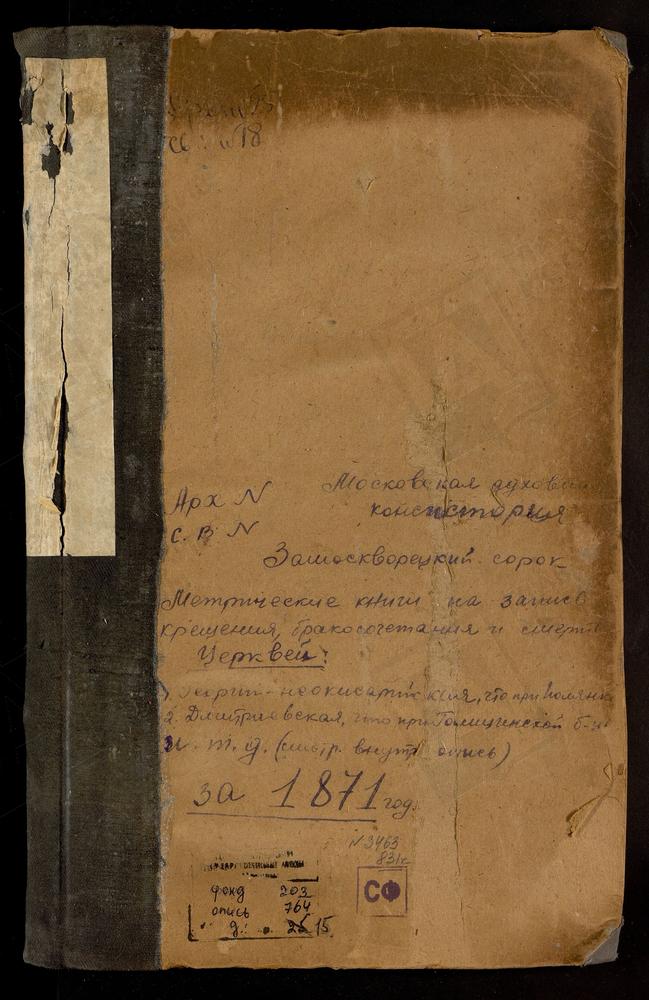 № 18
Арх N
Московская духовн
консистория
С. В. N
Замоскворецкий сорок
Метрические книги на запись
крещения, бракосочетания и смерт
Церквей:
что при
2. Дмитриевская, что при Голицинской б-це
и. т. д. (смотр. внутр опись)
за 1871 год.
N 3463
831г.
фонд 203
опись 764
д: 25 15
СФ